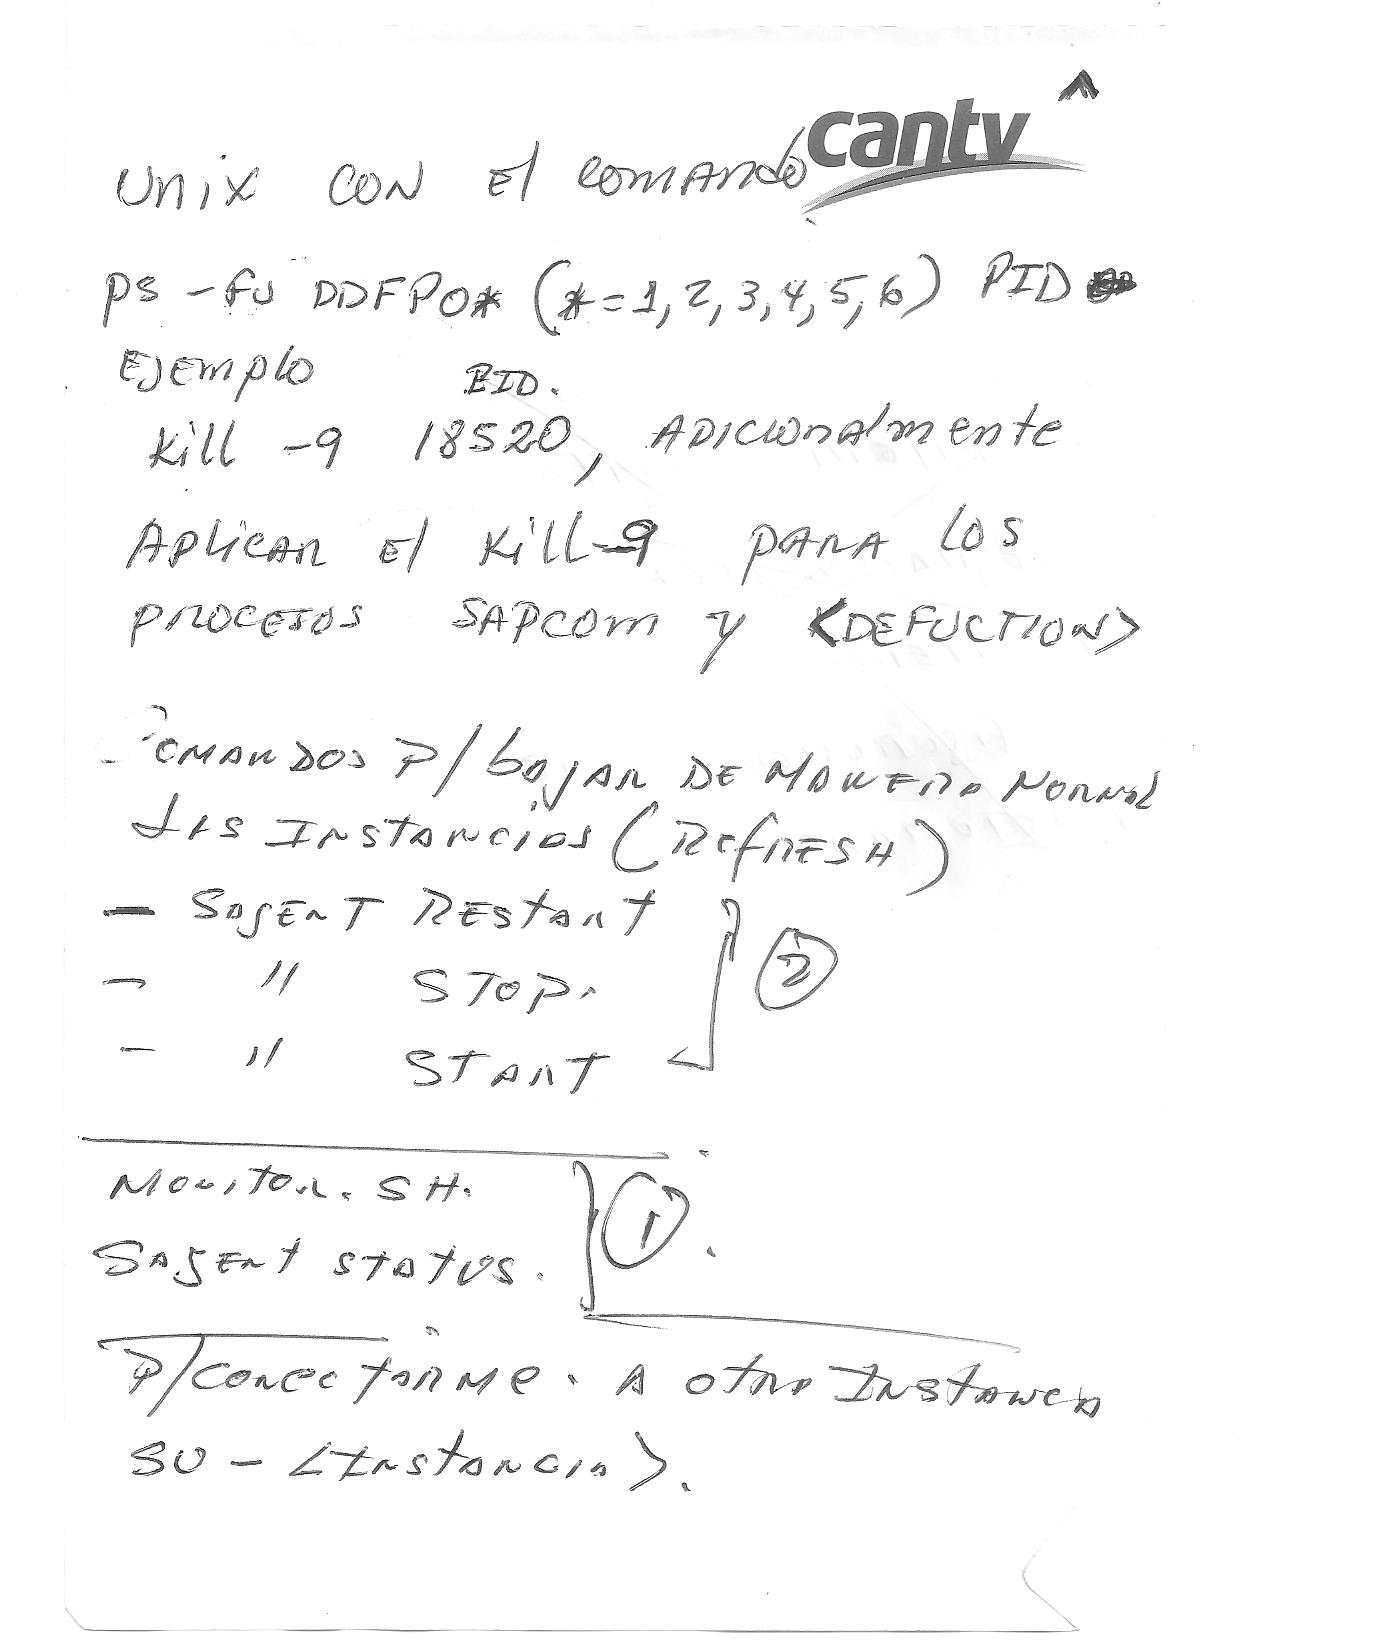 cantv
Unix con el comando
ps -fu DDFPO* (*=1,2,3,4,5,6) PID
Ejemplo PID.
Kill -9 18520, Adicionalmente
Aplicar el Kill-9 para los
procesos SAPCOM y <DEFUCTION>
Comandos P/ bajar de manera normal
las Instancias (Refresh)
- Sagent Restart
- " STOP. 2
- " START
Monitor. SH. 1
Sagent status.
P/conectarme. A otra Instancia
SU - <Instancia>.